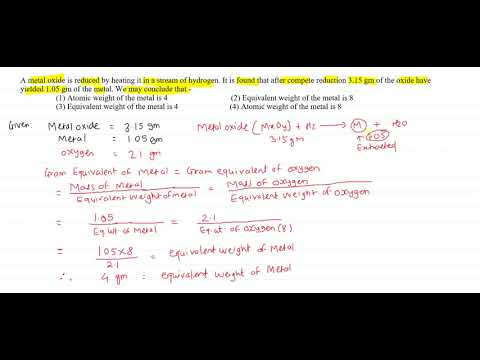 A metal oxide is reduced by heating it in a stream of hydrogen. It is found that after compete reduction 3.15 gm of the oxide have
yielded 1.05 gm of the metal. We may conclude that -
(1) Atomic weight of the metal is 4 (2) Equivalent weight of the metal is 8
(3) Equivalent weight of the metal is 4 (4) Atomic weight of the metal is 8
Given: Metal oxide = 3.15 gm Metal oxide (MxOy) + H2 → M + H2O
Metal = 1.05 gm 3.15 gm ↑ POS
oxygen = 2.1 gm Exhausted
Gram Equivalent of Metal = Gram equivalent of oxygen
= Mass of Metal / Equivalent weight of metal = Mass of oxygen / Equivalent weight of oxygen
= 1.05 / Eq wt. of Metal = 2.1 / Eq. wt. of oxygen (8)
= 1.05 x 8 / 2.1 = equivalent weight of Metal
∴ 4 gm = equivalent weight of Metal